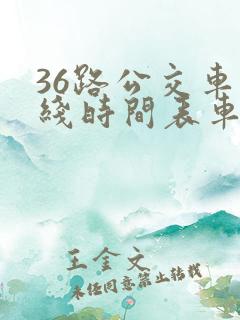 36路公交車
綫時間表車
王金文
未经同意禁止转载